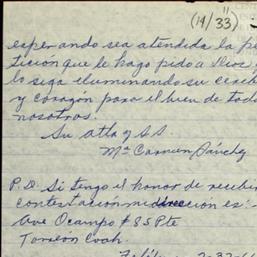 (14/33)
esperando sea atendida la pe
tición que le hago pido a Dios
lo siga iluminando su cereb
y corazón para el bien de todo
nosotros.
Su atta y S.S.
Ma Carmen Sánchez
P.D. Si tengo el honor de recibir
contestación mi dirección es:
Ave Ocampo # 85 Pte
Torreón Coah.